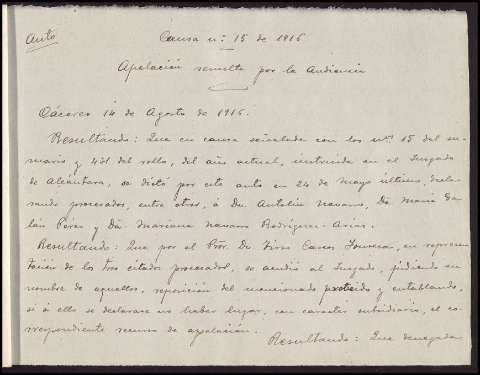 Auto
Causa nº 15 de 1916
Apelación resuelta por la Audiencia
Cáceres 14 de Agosto de 1916.
Resultando: Que en causa señalada con los nºs 15 del su-
mario y 431 del rollo, del año actual, instruida en el Juzgado
de Alcántara, se dictó por este auto en 24 de Mayo último, decla-
rando procesados, entre otros, á Dn. Antolín Navarro, Dª María Ga-
lán Pérez y Dª Mariana Navarro Rodríguez-Arias.
Resultando: Que por el Pror. Dn en represen
tación de los tres citados procesados, se acudió al Juzgado, pidiendo en
nombre de aquellos, reposición del mencionado proteido y entablando,
si á ello se declarase no haber lugar, con caracter subsidiario, el co-
rrespondiente recurso de apelación.
Resultando: Que denegada